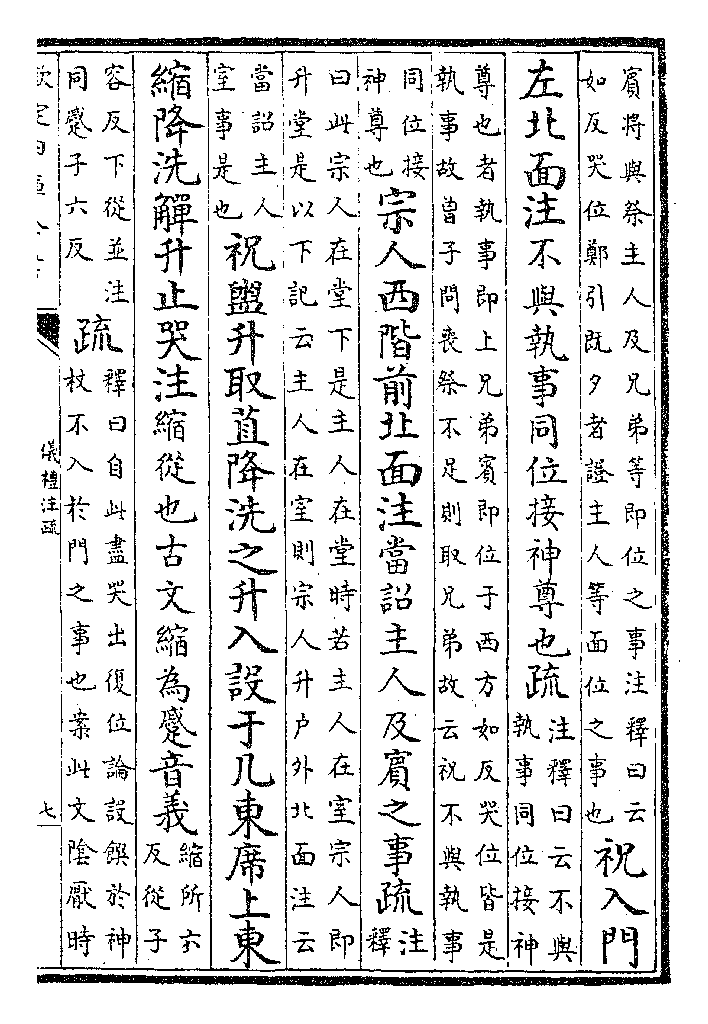 賓將與祭主人及兄弟等即位之事注釋曰云
如反哭位鄭引既夕者證主人等面位之事也
祝入門
左北面注不與執事同位接神尊也疏
注釋曰云不與
執事同位接神
尊也者執事即上兄弟賓即位于西方如反哭位皆是
執事故曾子問喪祭不足則取兄弟故云祝不與執事
同位接
神尊也
宗人西階前北面注當詔主人及賓之事疏
注
釋
曰此宗人在堂下是主人在堂時若主人在室宗人即
升堂是以下記云主人在室則宗人升戶外北面注云
當詔主人
室事是也
祝盥升取苴降洗之升入設于几東席上東
縮降洗觶升止哭注縮從也古文縮為蹙音義
縮所六
反從子
容反下從並注
同蹙子六反
疏
釋曰自此盡哭出復位論設饌於神
杖不入於門之事也案此文陰厭時
儀禮注疏
七